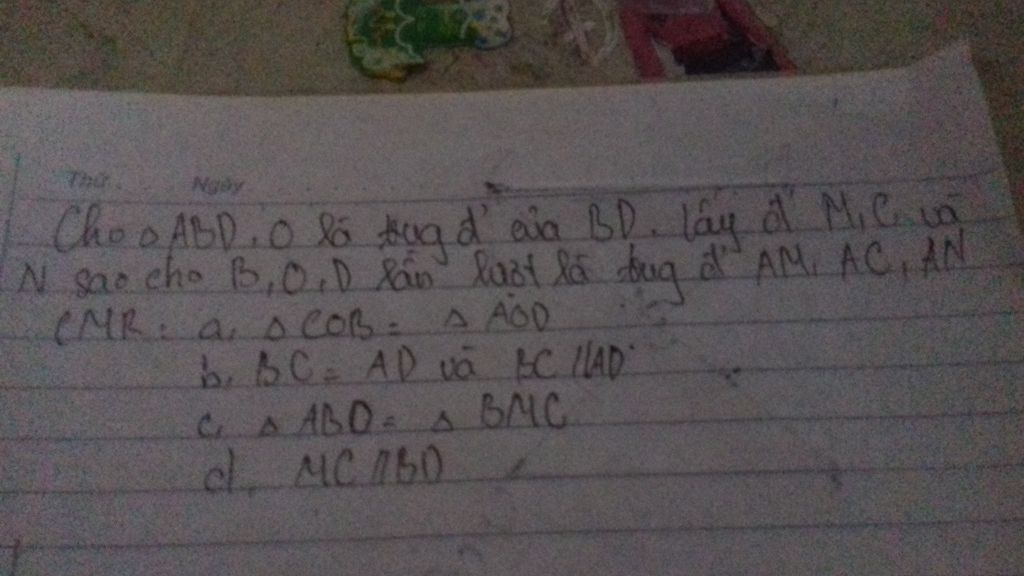 Thứ. Ngày
Cho △ ABD, O là trug đ' của BD. Lấy đ' M, C và
N sao cho B, O, D lần lượt là trug đ' AM, AC, AN
CMR: a, △ COB = △ AOD
b, BC = AD và BC // AD
c, △ ABD = △ BMC
d, MC // BD